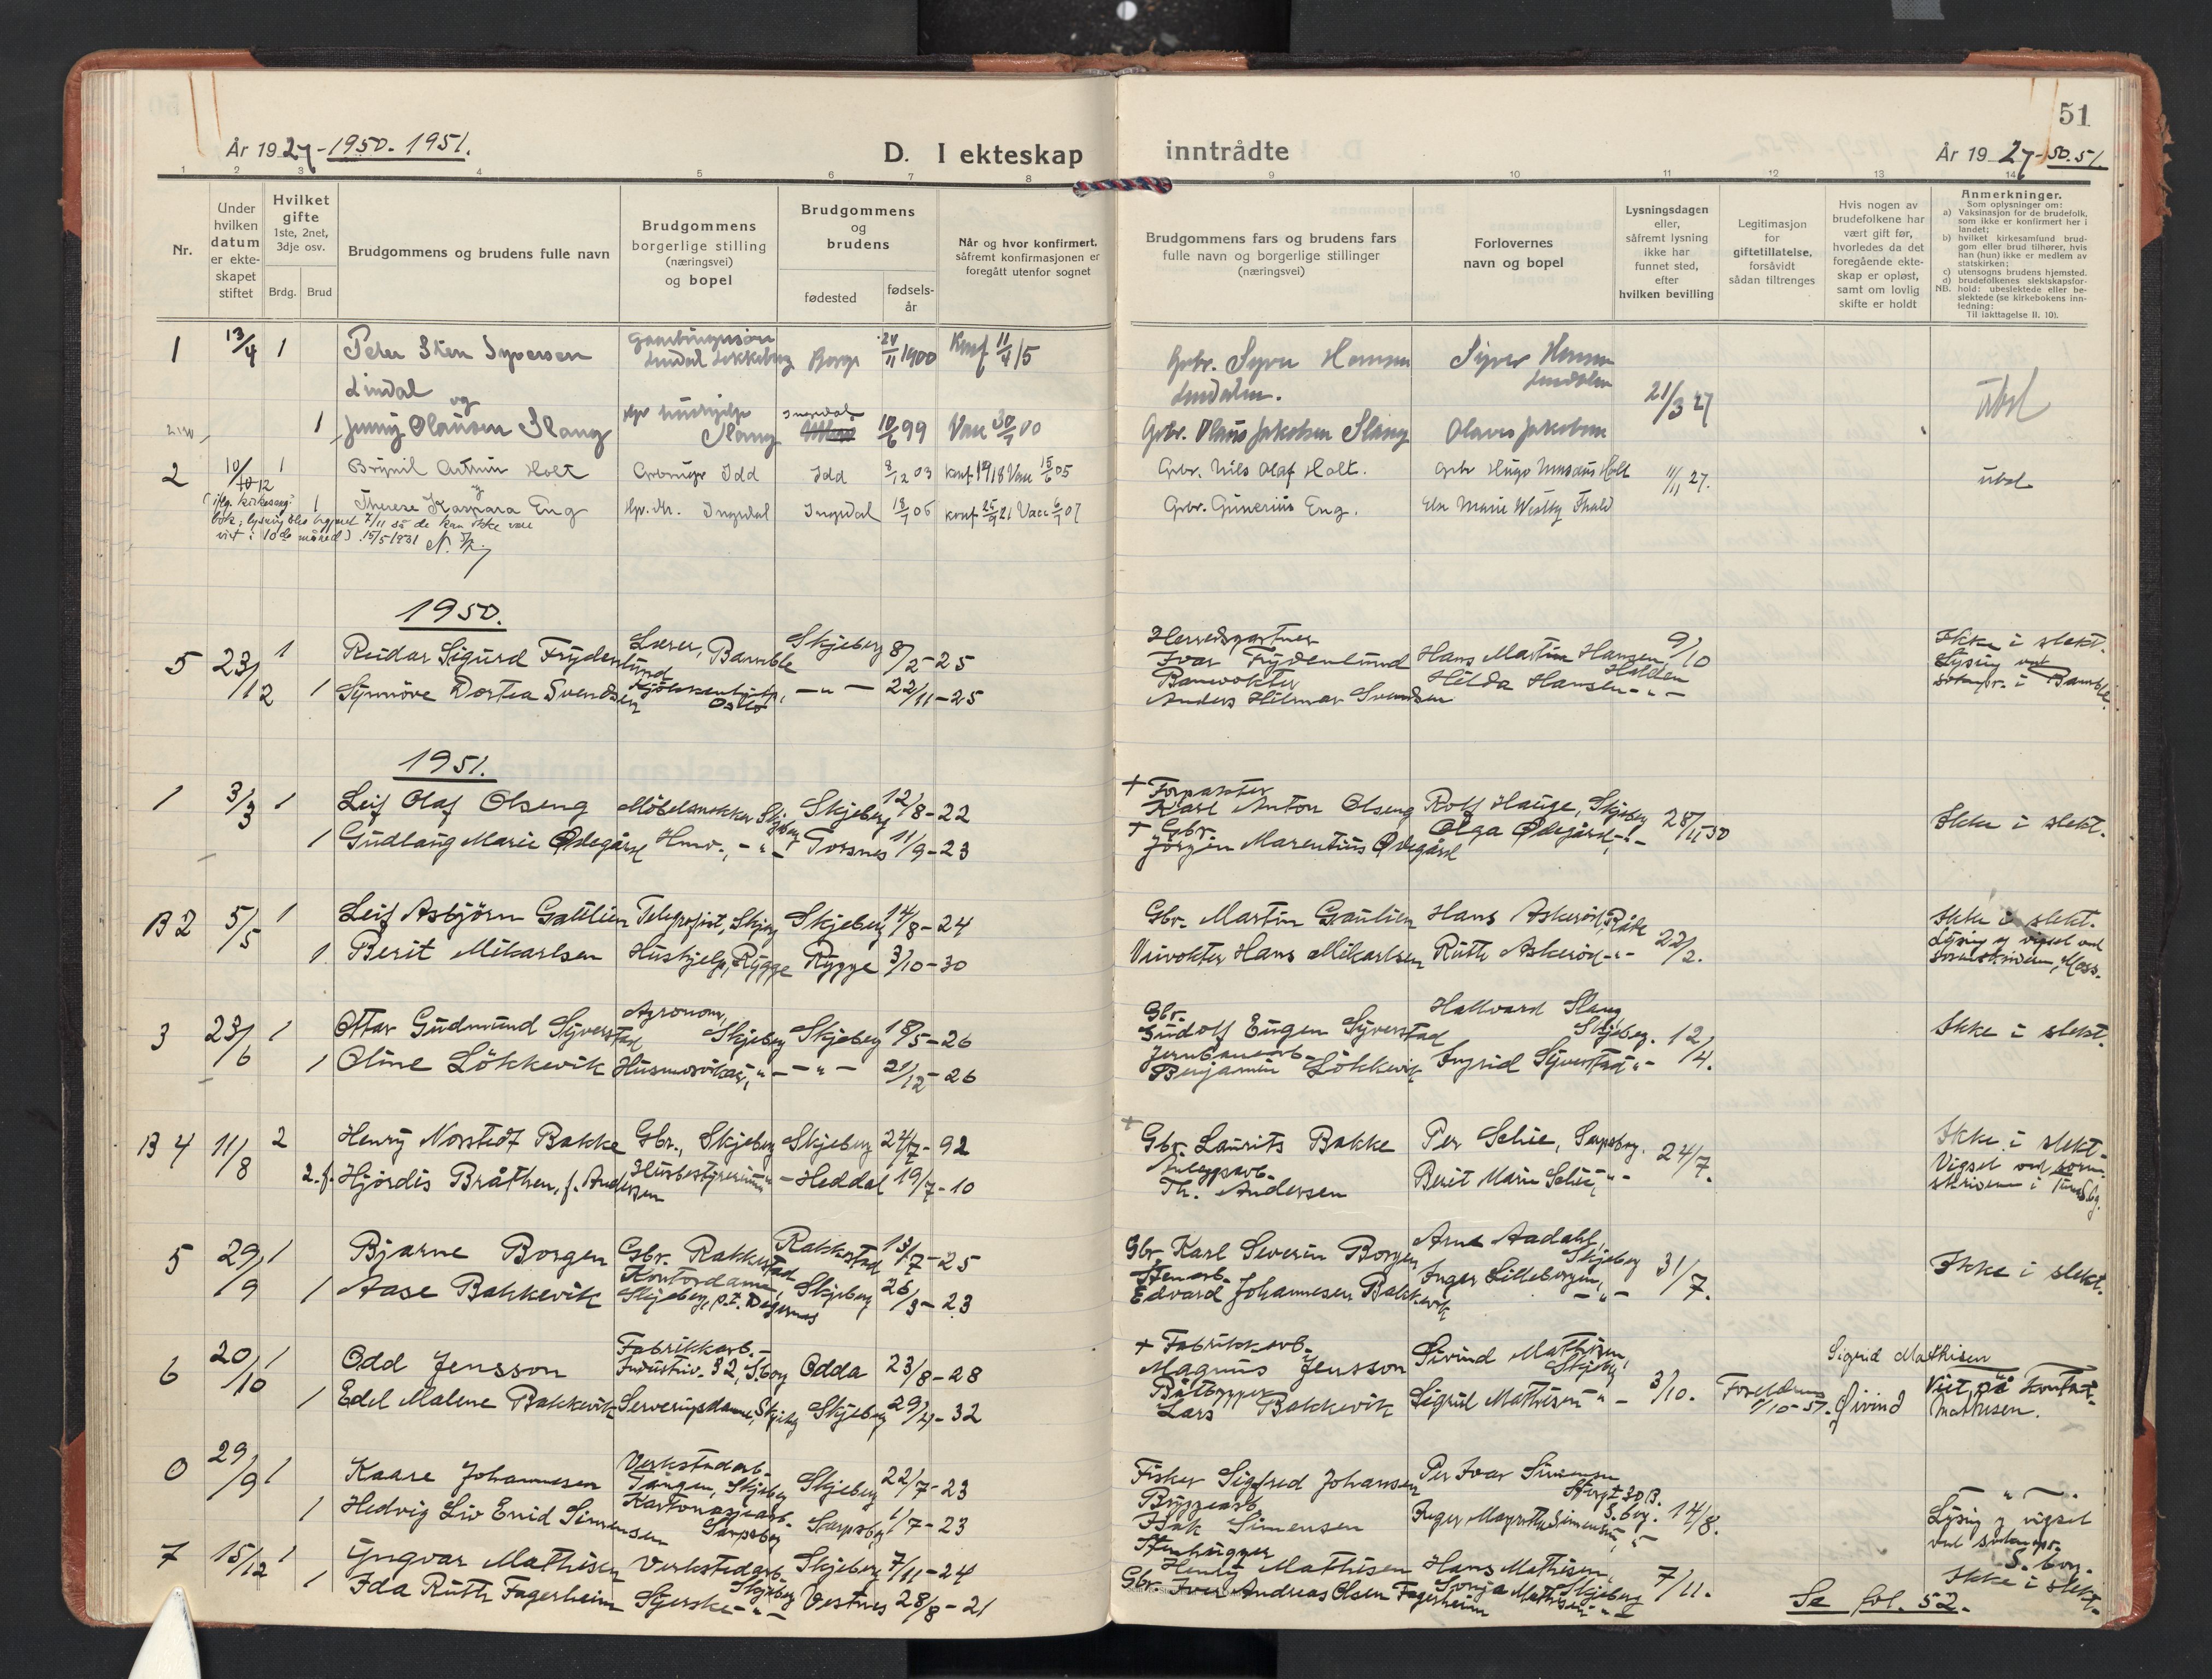 51
År 1927-1950-1951.
D. I ekteskap
inntrådte
År 1927-50.51.
1 2 3 4 5 6 7 8 9 10 11 12 13 14
Nr.
Under
hvilken
datum
er ekte-
skapet
stiftet
Hvilket
gifte
1ste, 2net,
3dje osv.
Brdg. Brud
Brudgommens og brudens fulle navn
Brudgommens
borgerlige stilling
(næringsvei)
og bopel
Brudgommens
og
brudens
fødested
fødsels-
år
Når og hvor konfirmert,
såfremt konfirmasjonen er
foregått utenfor sognet
Brudgommens fars og brudens fars
fulle navn og borgerlige stillinger
(næringsvei)
Forlovernes
navn og bopel
Lysningsdagen
eller,
såfremt lysning
ikke har
funnet sted,
efter
hvilken bevilling
Legitimasjon
for
giftetillatelse,
forsåvidt
sådan tiltrenges
Hvis nogen av
brudefolkene har
vært gift før,
hvorledes da det
foregående ekte-
skap er opløst,
samt om lovlig
skifte er holdt
Anmerkninger.
Som oplysninger om:
a) Vaksinasjon for de brudefolk,
som ikke er konfirmert her i
landet;
b) hvilket kirkesamfund brud-
gom eller brud tilhører, hvis
han (hun) ikke er medlem av
statskirken;
c) utensogns brudens hjemsted.
d) brudefolkenes slekskapsfor-
hold: ubeslektede eller be-
slektede (se kirkebokens inn-
ledning:
NB. Til iakttagelse II. 10).
1 13/4 1 Peter Sten Syversen Borge 24/11 1900 Konf 11/4 15 Gbr. Syver Hansen Syver Hansen
Lindal
og
21/3 27
ubsl
1 Jenny Olausen Slang Slang Ingedal 10/6 99 Vacc 30/7 00 Gbr. Olaus Jakobsen Slang Olaus Jakobsen
2 10/12 1 Brynil Artur Holt Idd Idd 8/12 03 konf 1918 Vacc 15/6 05 Gbr. Nils Olaf Holt. 11/11 27. ubsl
og
1 Therese Kaspara Eng Ingedal Ingedal 18/7 06 konf 25/9 21 Vacc 6/7 07 Gbr. Gunerius Eng. Else Marie Westby
bok; lysning blev begjæret 7/11 så de kan ikke være
viet i 10de måned) 15/5 1931
1950.
5 23/12 1 Reidar Sigurd Frydenlund Lærer, Bamble Skjeberg 8/2-25 Herredsgartner Ivar Frydenlund Hans Martin Hansen, Halden 9/10 Ikke i slekt.
1 Synnöve Dortea Svendsen Kjökkenhjelp, Oslo -"- 22/11-25 Banevokter Anders Hilmar Svendsen Hilda Hansen -"- Lysing ved
i Bamble.
1951.
1 3/3 1 Leif Olaf Olseng Möbelsnekker Skjeberg Skjeberg 12/8-22 + Forpakter Karl Anton Olseng Rolf Hauge, Skjeberg 28/11 50 Ikke i slekt.
1 Gudlaug Marie Ødegård Hmv., -"- Torsnes 11/9-23 + Gbr. Jörgen Marentius Ødegård Olga Ødegård, -"-
B 2 5/5 1 Leif Asbjörn Gautlien Telegrafist, Skjeberg Skjeberg 14/8-24 Gbr. Martin Gautlien Hans Askeröd, Råde 22/2. Ikke i slekt.
1 Berit Mikarlsen Hushjelp, Rygge Rygge 3/10-30 Hans Mikarlsen Ruth Askeröd -"- Lysing og vigsel ved
sorenskriveren, Moss.
3 23/6 1 Ottar Gudmund Syverstad Agronom, Skjeberg Skjeberg 18/5-26 Gbr. Gudolf Eugen Syverstad Hallvard Slang Skjeberg. 12/4. Ikke i slekt.
1 Oline Lökkevik -"- -"- 21/12-26 Jernbanearb. Benjamin Lökkevik Ingrid Syverstad -"-
B 4 11/8 2 Henry Norstedt Bakke Gbr., Skjeberg Skjeberg 24/7-92 + Gbr. Laurits Bakke Per Selie, Sarpsborg. 24/7. Ikke i slekt.
2. f. Hjördis Bråthen, f. Andersen Husbestyrerinne -"- Heddal 19/7-10 Anleggsarb. Th. Andersen Berit Marie Selie, -"- Vigsel ved soren-
skriveren i
5 29/9 1 Bjarne Borgen Gbr. Rakkestad Rakkestad 13/7-25 Gbr. Karl Severin Borgen Arne Aadahl, Skjeberg 31/7. Ikke i slekt.
1 Aase Bakkevik Kontordame, Skjeberg, p.t. Degernes Skjeberg 26/3-23 Stenarb. Edvard Johannesen Bakkevik Inger Lilleborgen, -"-
6 20/10 1 Odd Jensson Fabrikkarb. Industriv. 32, S.borg Odda 23/8-28 + Fabrikkarb. Magnus Jensson Eivind Mathisen, Skjeberg 3/10. Sigrid Mathisen
1 Edel Malene Bakkevik Serveringsdame, Skjeberg Skjeberg 29/4-32 Båtbygger Lars Bakkevik Sigrid Mathisen -"- Foreldrene 1/10-51. Øivind Mathisen. Viet på
0 29/9 1 Kaare Johannesen Verkstedarb. Tangen, Skjeberg Skjeberg 22/7-23 Fisker Sigfred Johansen Per Ivar Simensen 30 B. S.borg. 14/8. -"-
1 Hedvig Liv Enid Simensen Kartonasjearb. Sarpsborg Sarpsborg 1/7-23 Byggearb. Isak Simensen Inger Magrethe Simensen, -"- Lysing og vigsel
ved
S. borg.
7 15/12 1 Yngvar Mathisen Verkstedarb. Skjeberg Skjeberg 7/11-24 Stenhugger Henry Mathisen Hans Mathisen, Skjeberg 7/11. Ikke i slekt.
1 Ida Ruth Fagerheim Syerske -"- Vestnes 28/8-21 Gbr. Iver Andreas Olsen Fagerheim Sonja Mathisen -"-
Se fol. 52.